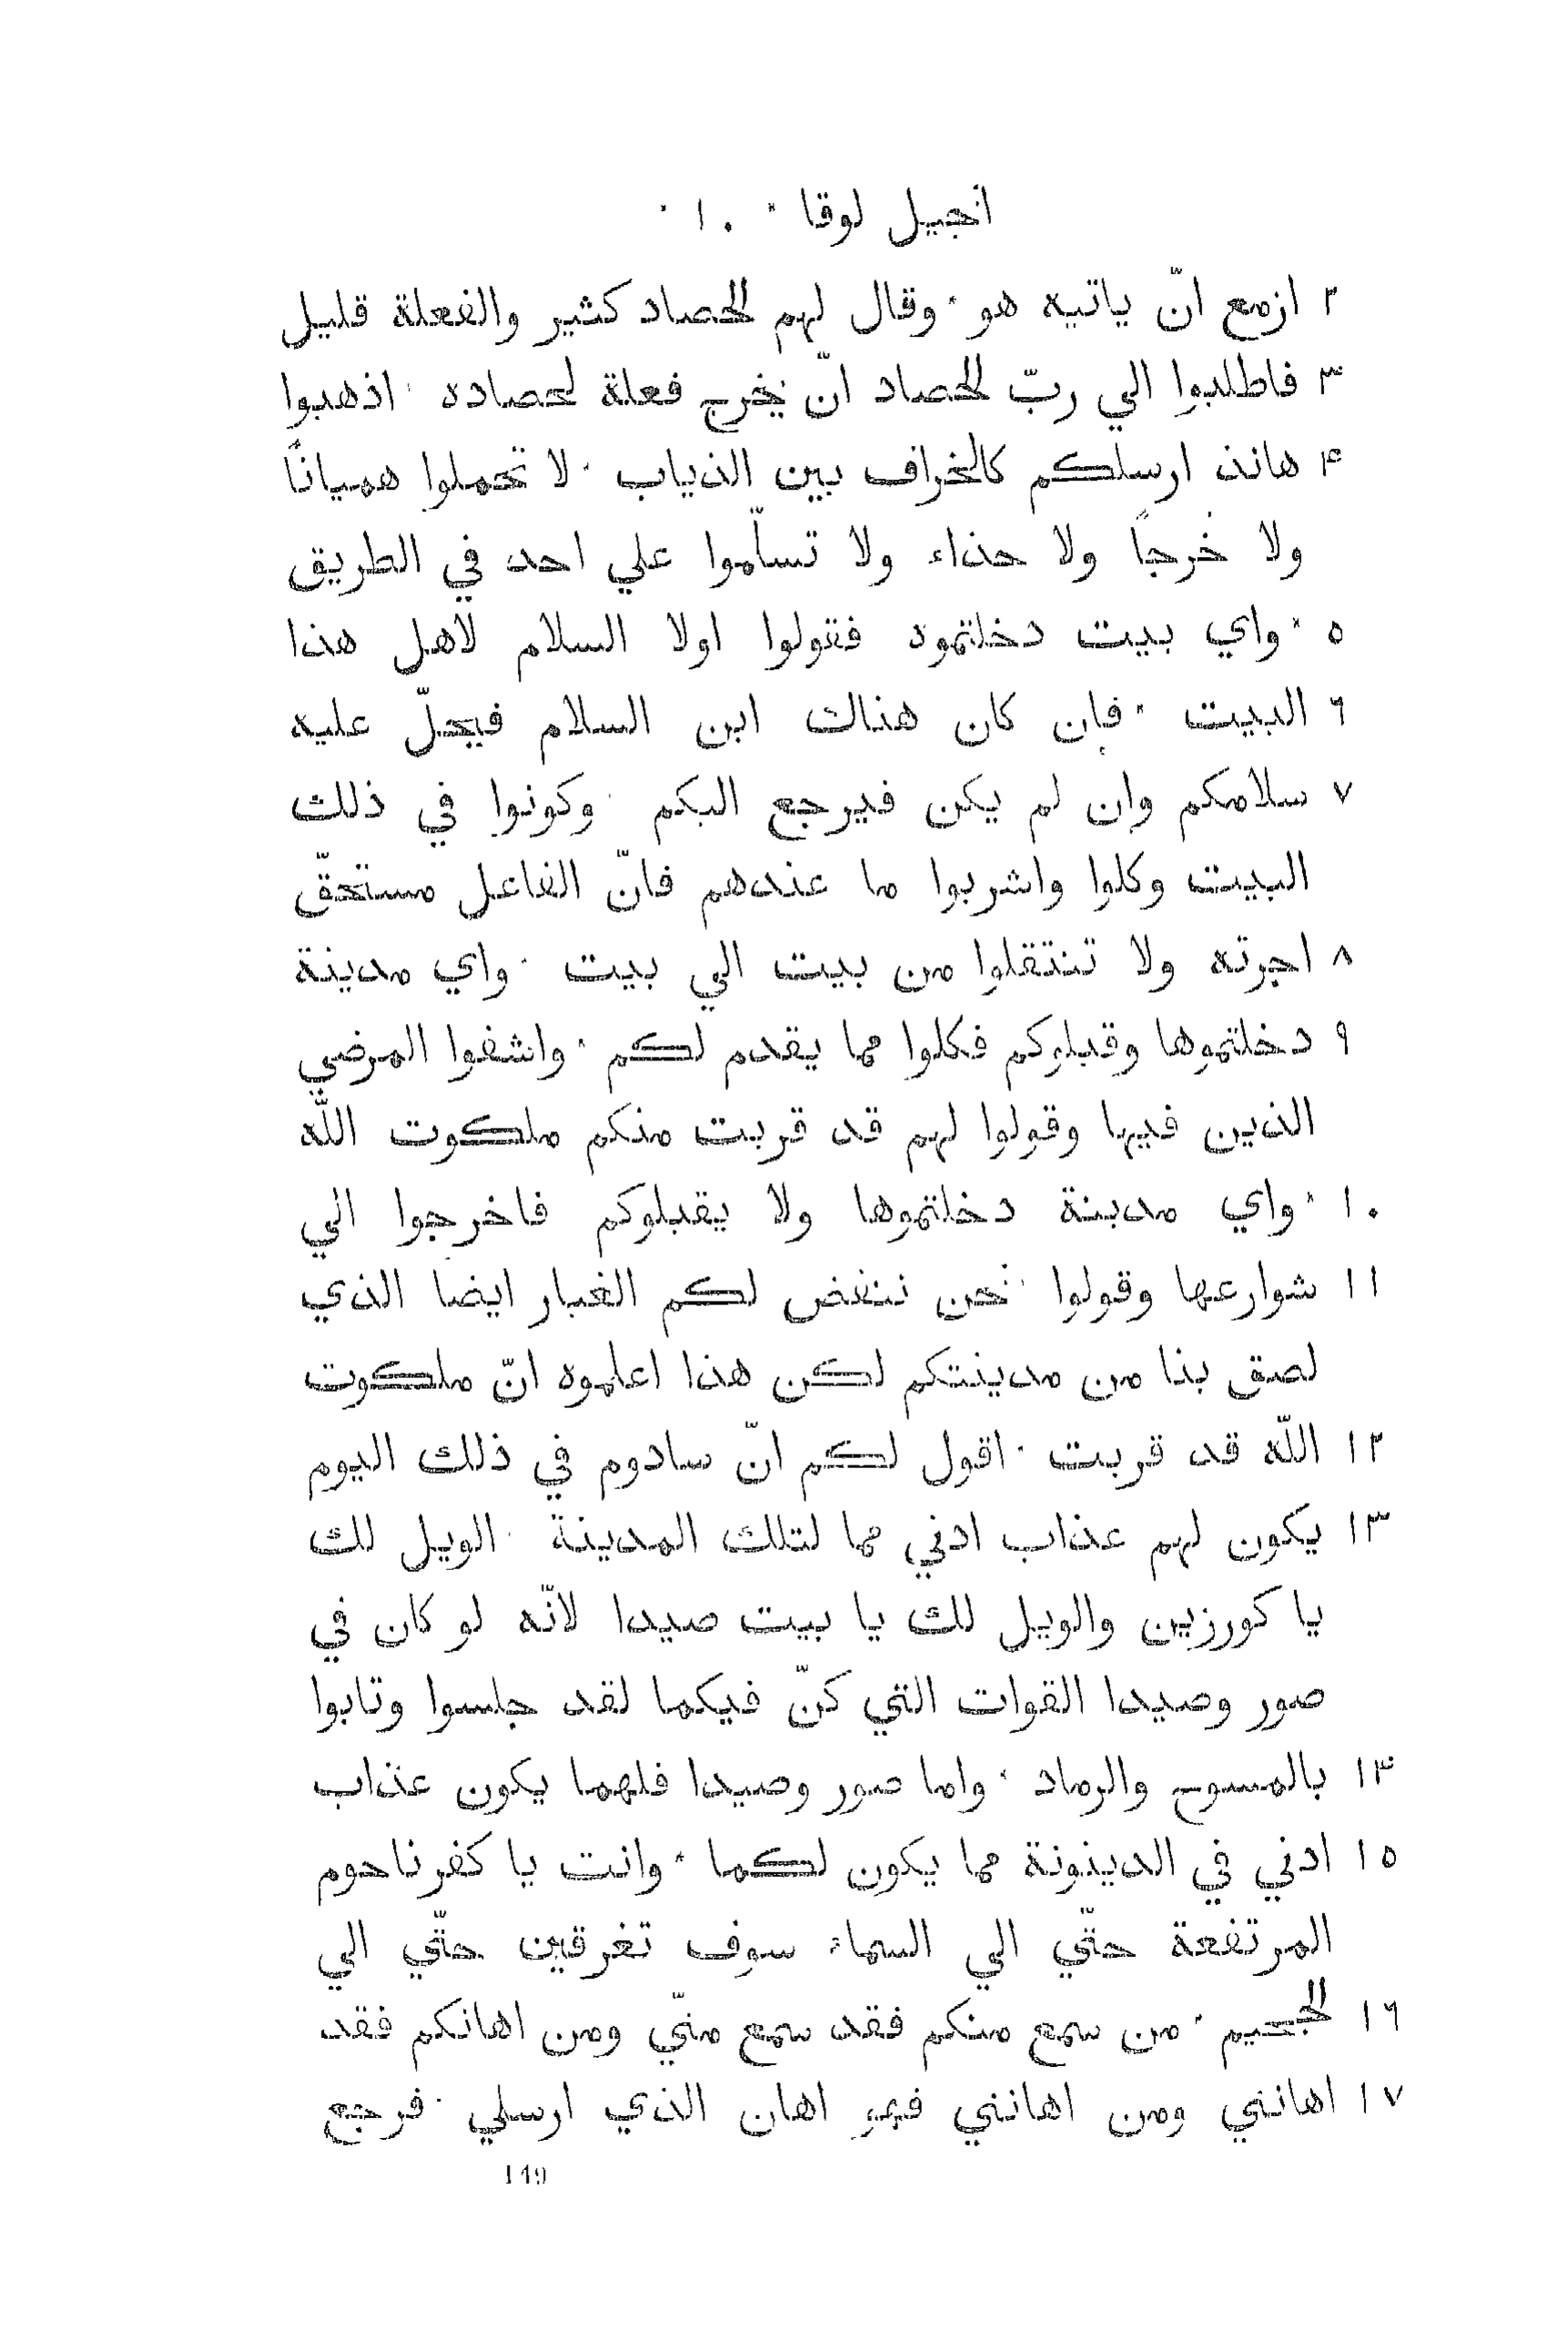 انجيل لوقا ٠ ١٠ ٠
٢ ازمع انّ ياتيه هو ٠ وقال لهم الحصاد كثير والفعلة قليل
٣ فاطلبوا الي ربّ الحصاد انّ يخرج فعلة لحصاده ٠ اذهبوا
۴ هانذ ارسلكم كالخراف بين الذياب ٠ لا تحملوا هميانًا
ولا خرجًا ولا حذاء ولا تسلّموا علي احد في الطريق
٥ ٠ واي بيت دخلتموه فقولوا اولا السلام لاهل هذا
٦ البيت ٠ فان كان هناك ابن السلام فيحلّ عليه
٧ سلامكم وان لم يكن فيرجع اليكم ٠ وكونوا في ذلك
البيت وكلوا واشربوا ما عندهم فانّ الفاعل مستحقّ
٨ اجرته ولا تنتقلوا من بيت الي بيت ٠ واي مدينة
٩ دخلتموها وقبلوكم فكلوا مما يقدم لكم ٠ واشفوا المرضي
الذين فيها وقولوا لهم قد قربت منكم ملكوت اللّه
١٠ ٠ واي مدينة دخلتموها ولا يقبلوكم فاخرجوا الي
١١ شوارعها وقولوا ٠ نحن ننفض لكم الغبار ايضا الذي
لصق بنا من مدينتكم لكن هذا اعلموه انّ ملكوت
١٢ اللّه قد قربت ٠ اقول لكم انّ سادوم في ذلك اليوم
١٣ يكون لهم عذاب ادني مما لتلك المدينة ٠ الويل لك
يا كورزين والويل لك يا بيت صيدا لانّه لو كان في
صور وصيدا القوات التي كنّ فيكما لقد جلسوا وتابوا
١۴ بالمسوح والرماد ٠ واما صور وصيدا فلهما يكون عذاب
١٥ ادني في الدينونة مما يكون لكما ٠ وانت يا كفرناحوم
المرتفعة حتّي الي السماء سوف تغرقين حتّي الي
١٦ الجحيم ٠ من سمع منكم فقد سمع منّي ومن اهانكم فقد
١٧ اهانني ومن اهانني فهو اهان الذي ارسلي ٠ فرجع
149